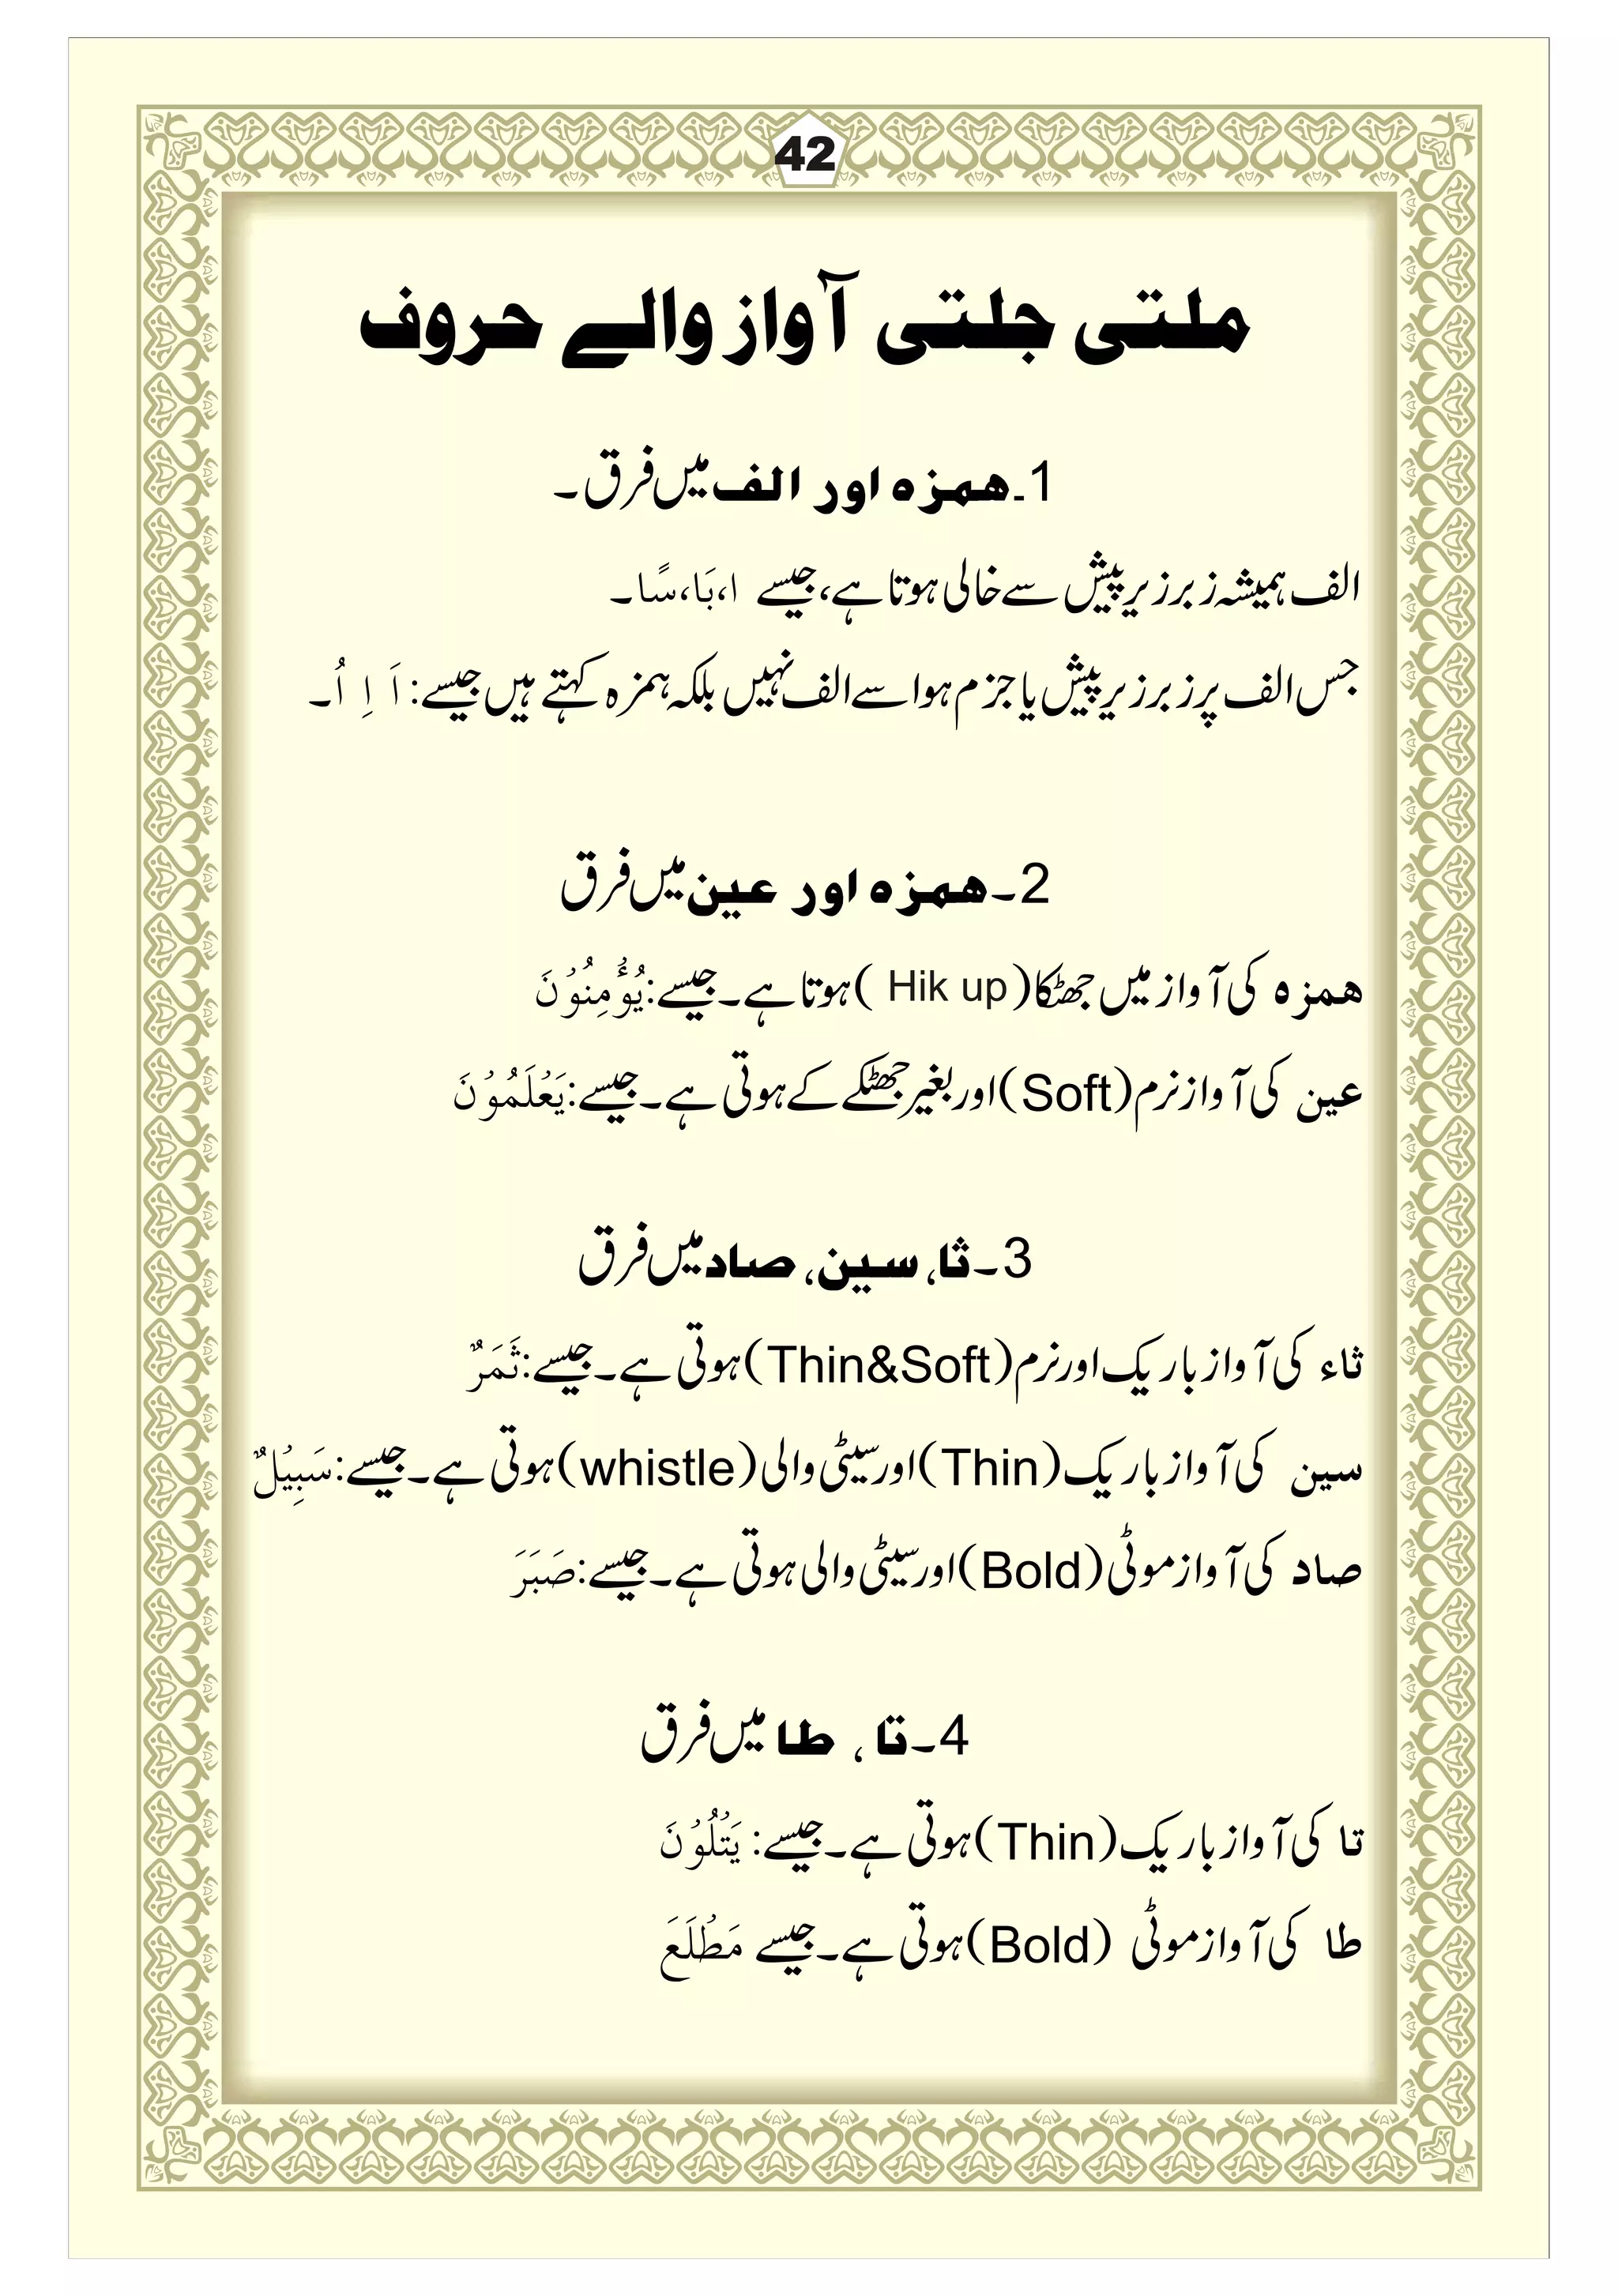 42
ملتی جلتی آواز والے حروف
1۔ھمزہ اور الف میں فرق۔
الف ہمیشہ زبر زیر پیش سے خالی ہوتا ہے، جیسے ا، بَا، سًا۔
جس الف پر زبر زیر پیش یا جزم ہو اسے الف نہیں بلکہ ہمزہ کہتے ہیں جیسے: اَ اِ اُ۔
2۔ھمزہ اور عین میں فرق
ھمزہ کی آواز میں جھٹکا (Hik up) ہوتا ہے۔ جیسے: یُؤْمِنُوْنَ
عین کی آواز نرم (Soft) اور بغیر جھٹکے کے ہوتی ہے۔ جیسے: یَعْلَمُوْنَ
3۔ثا، سین، صاد میں فرق
ثاء کی آواز باریک اور نرم (Thin&Soft) ہوتی ہے۔ جیسے: ثَمَرٌ
سین کی آواز باریک (Thin) اور سیٹی والی (whistle) ہوتی ہے۔ جیسے: سَبِیْلٌ
صاد کی آواز موٹی (Bold) اور سیٹی والی ہوتی ہے۔ جیسے: صَبَرَ
4۔تا ، طا میں فرق
تا کی آواز باریک (Thin) ہوتی ہے۔ جیسے: یَتْلُوْنَ
طا کی آواز موٹی (Bold) ہوتی ہے۔ جیسے مَطْلَعَ